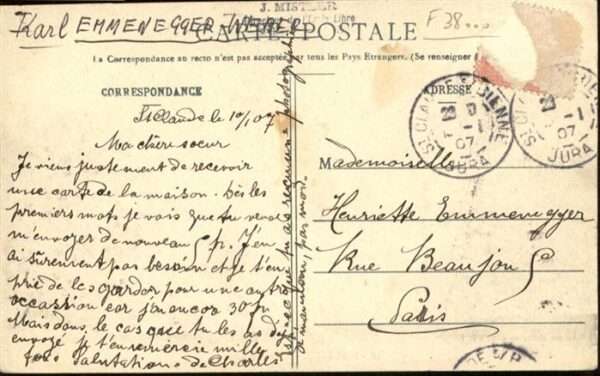 J. MISTLER
Karl EMMENEGGER WEBER
F 38...
CARTE POSTALE
La Correspondance au recto n'est pas acceptée par tous les Pays Etrangers. (Se renseigner
CORRESPONDANCE
ADRESSE
St Claude le 10/1 07
Ma chère soeur
Je viens justement de recevoir
une carte de la maison. Dès les
premiers mots je vois que tu veux
m'envoyer de nouveau 5 fr. J'en
ai sûrement pas besoin et je t'en
prie de les garder pour une autre
occasion car j'ai encor 30 fr.
Mais dans le cas que tu les as déjà
envoyé je t'en remercie mille
fois Salutation de Charles
Est-ce que tu as reconnu photographie
de maman, pas moi.
Mademoiselle
Henriette Emmenegger
Rue Beaujon 5
Paris
ST CLAUDE BIENNE
1
07
JURA
ST CL
1
07
JURA